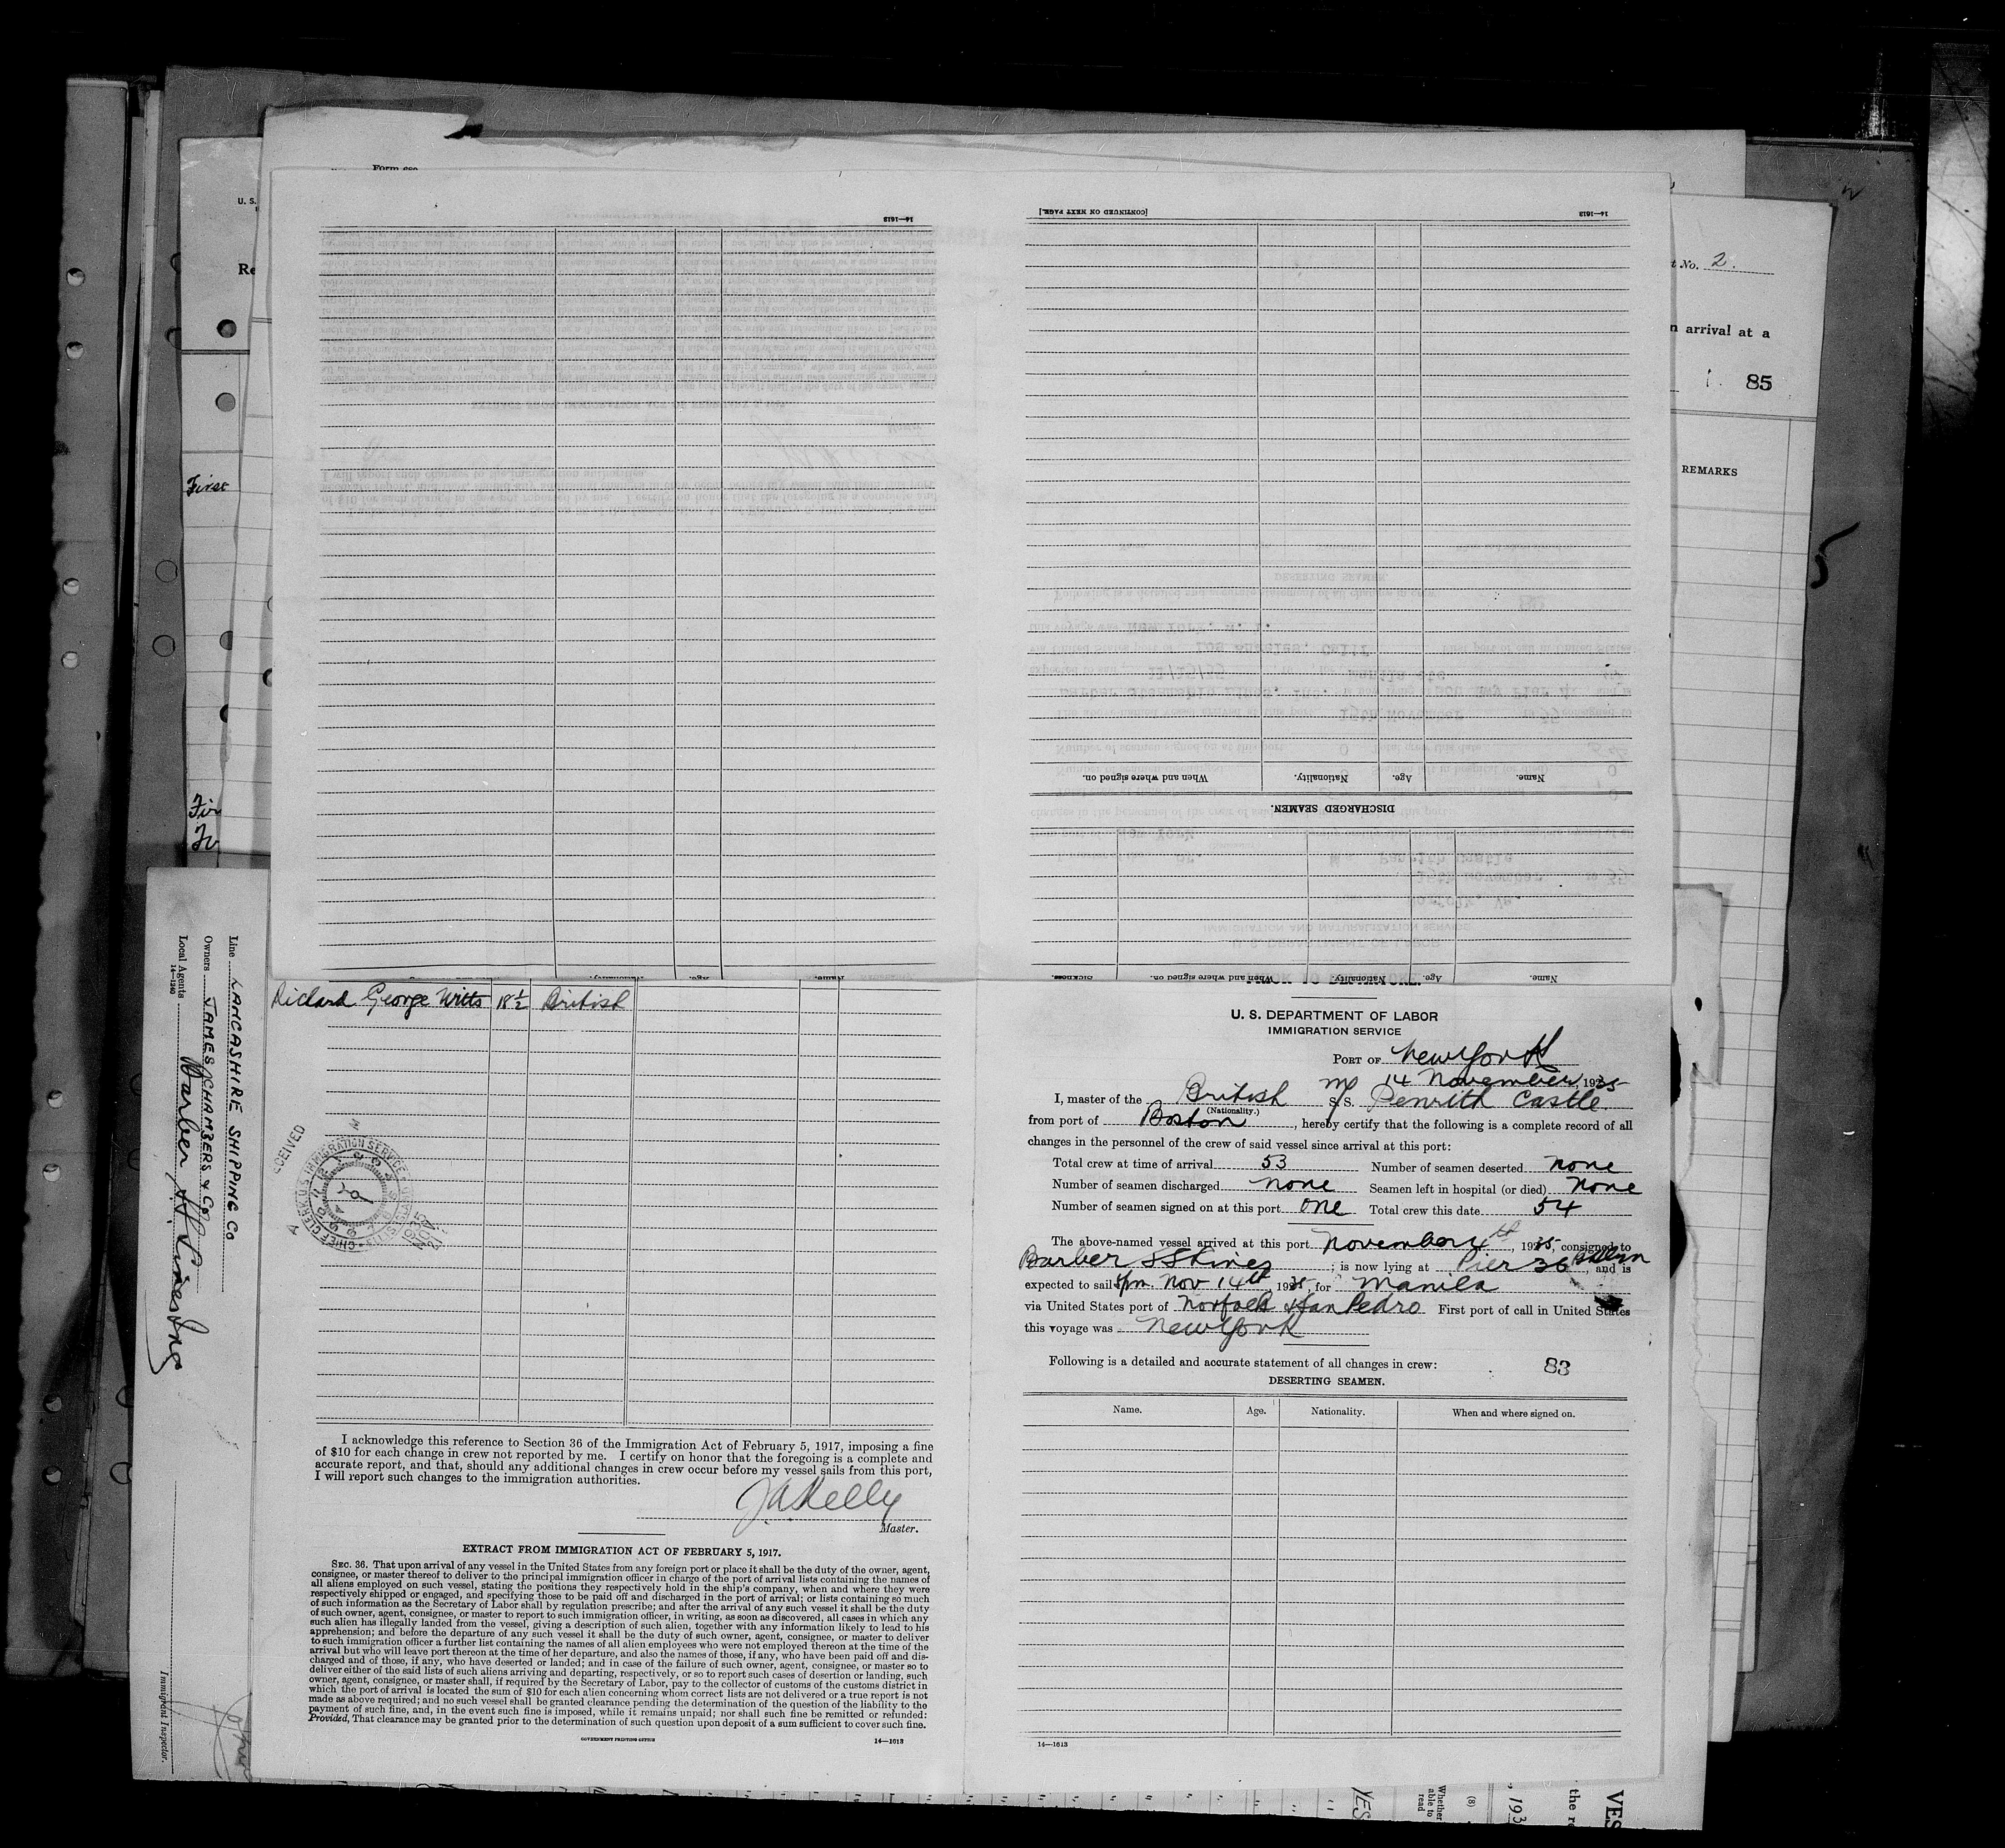 Form 680
U. S.
Re
14—1613
[CONTINUED ON NEXT PAGE.]
14—1613
t No. 2.
n arrival at a
85
REMARKS
5
First
Fir
When and where signed on.
Nationality.
Age.
Name.
DISCHARGED SEAMEN.
Sickness.
When and where signed on.
Nationality.
Age.
Name.
Line LANCASHIRE SHIPPING Co
Owners JAMES CHAMBERS & Co
Local Agents Barber S S Lines Inc
14—1240
Immigrant Inspector.
Richard George Witts 18½ British
RECEIVED
CHIEF CLERK U.S. IMMIGRATION SERVICE
U. S. DEPARTMENT OF LABOR
IMMIGRATION SERVICE
PORT OF New York
14 November, 1935
I, master of the British M/S. Penrith Castle
(Nationality.)
from port of Boston, hereby certify that the following is a complete record of all
changes in the personnel of the crew of said vessel since arrival at this port:
Total crew at time of arrival 53 Number of seamen deserted none
Number of seamen discharged none Seamen left in hospital (or died) none
Number of seamen signed on at this port one Total crew this date 54
The above-named vessel arrived at this port November 4th, 1935, consigned to
Barber SS Lines; is now lying at Pier 36 Bklyn, and is
expected to sail 5pm Nov 14th 1935, for Manila
via United States port of Norfolk & San Pedro First port of call in United States
this voyage was New York
Following is a detailed and accurate statement of all changes in crew: 83
DESERTING SEAMEN.
Name. Age. Nationality. When and where signed on.
14—1613
I acknowledge this reference to Section 36 of the Immigration Act of February 5, 1917, imposing a fine
of $10 for each change in crew not reported by me. I certify on honor that the foregoing is a complete and
accurate report, and that, should any additional changes in crew occur before my vessel sails from this port,
I will report such changes to the immigration authorities.
J A Kelly
Master.
EXTRACT FROM IMMIGRATION ACT OF FEBRUARY 5, 1917.
SEC. 36. That upon arrival of any vessel in the United States from any foreign port or place it shall be the duty of the owner, agent,
consignee, or master thereof to deliver to the principal immigration officer in charge of the port of arrival lists containing the names of
all aliens employed on such vessel, stating the positions they respectively hold in the ship's company, when and where they were
respectively shipped or engaged, and specifying those to be paid off and discharged in the port of arrival; or lists containing so much
of such information as the Secretary of Labor shall by regulation prescribe; and after the arrival of any such vessel it shall be the duty
of such owner, agent, consignee, or master to report to such immigration officer, in writing, as soon as discovered, all cases in which any
such alien has illegally landed from the vessel, giving a description of such alien, together with any information likely to lead to his
apprehension; and before the departure of any such vessel it shall be the duty of such owner, agent, consignee, or master to deliver
to such immigration officer a further list containing the names of all alien employees who were not employed thereon at the time of the
arrival but who will leave port thereon at the time of her departure, and also the names of those, if any, who have been paid off and dis-
charged and of those, if any, who have deserted or landed; and in case of the failure of such owner, agent, consignee, or master so to
deliver either of the said lists of such aliens arriving and departing, respectively, or so to report such cases of desertion or landing, such
owner, agent, consignee, or master shall, if required by the Secretary of Labor, pay to the collector of customs of the customs district in
which the port of arrival is located the sum of $10 for each alien concerning whom correct lists are not delivered or a true report is not
made as above required; and no such vessel shall be granted clearance pending the determination of the question of the liability to the
payment of such fine, and, in the event such fine is imposed, while it remains unpaid; nor shall such fine be remitted or refunded:
Provided, That clearance may be granted prior to the determination of such question upon deposit of a sum sufficient to cover such fine.
GOVERNMENT PRINTING OFFICE
14—1613
YES
Whether able to read
(8)
, 193
the r
VES